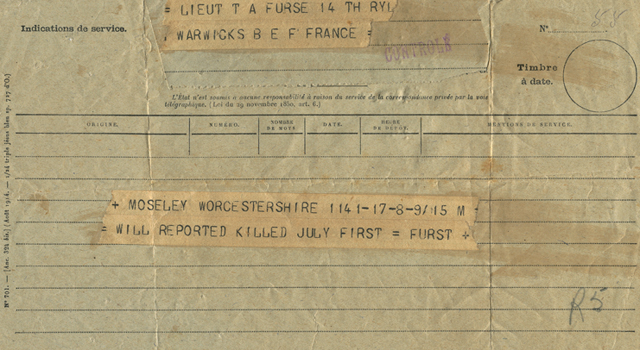 = LIEUT T A FURSE 14 TH RYL
WARWICKS B E F FRANCE =
Indications de service.
CONTROLE
N°
Timbre
à date.
L'État n'est soumis à aucune responsabilité à raison du service de la correspondance privée par la voie
télégraphique. (Loi du 29 novembre 1850, art. 6.)
ORIGINE.
NUMÉRO.
NOMBRE
DE MOTS.
DATE.
HEURE
DE DÉPÔT.
MENTIONS DE SERVICE.
+ MOSELEY WORCESTERSHIRE 1141-17-8-9/15 M -
= WILL REPORTED KILLED JULY FIRST = FURST +
R5
N° 701.